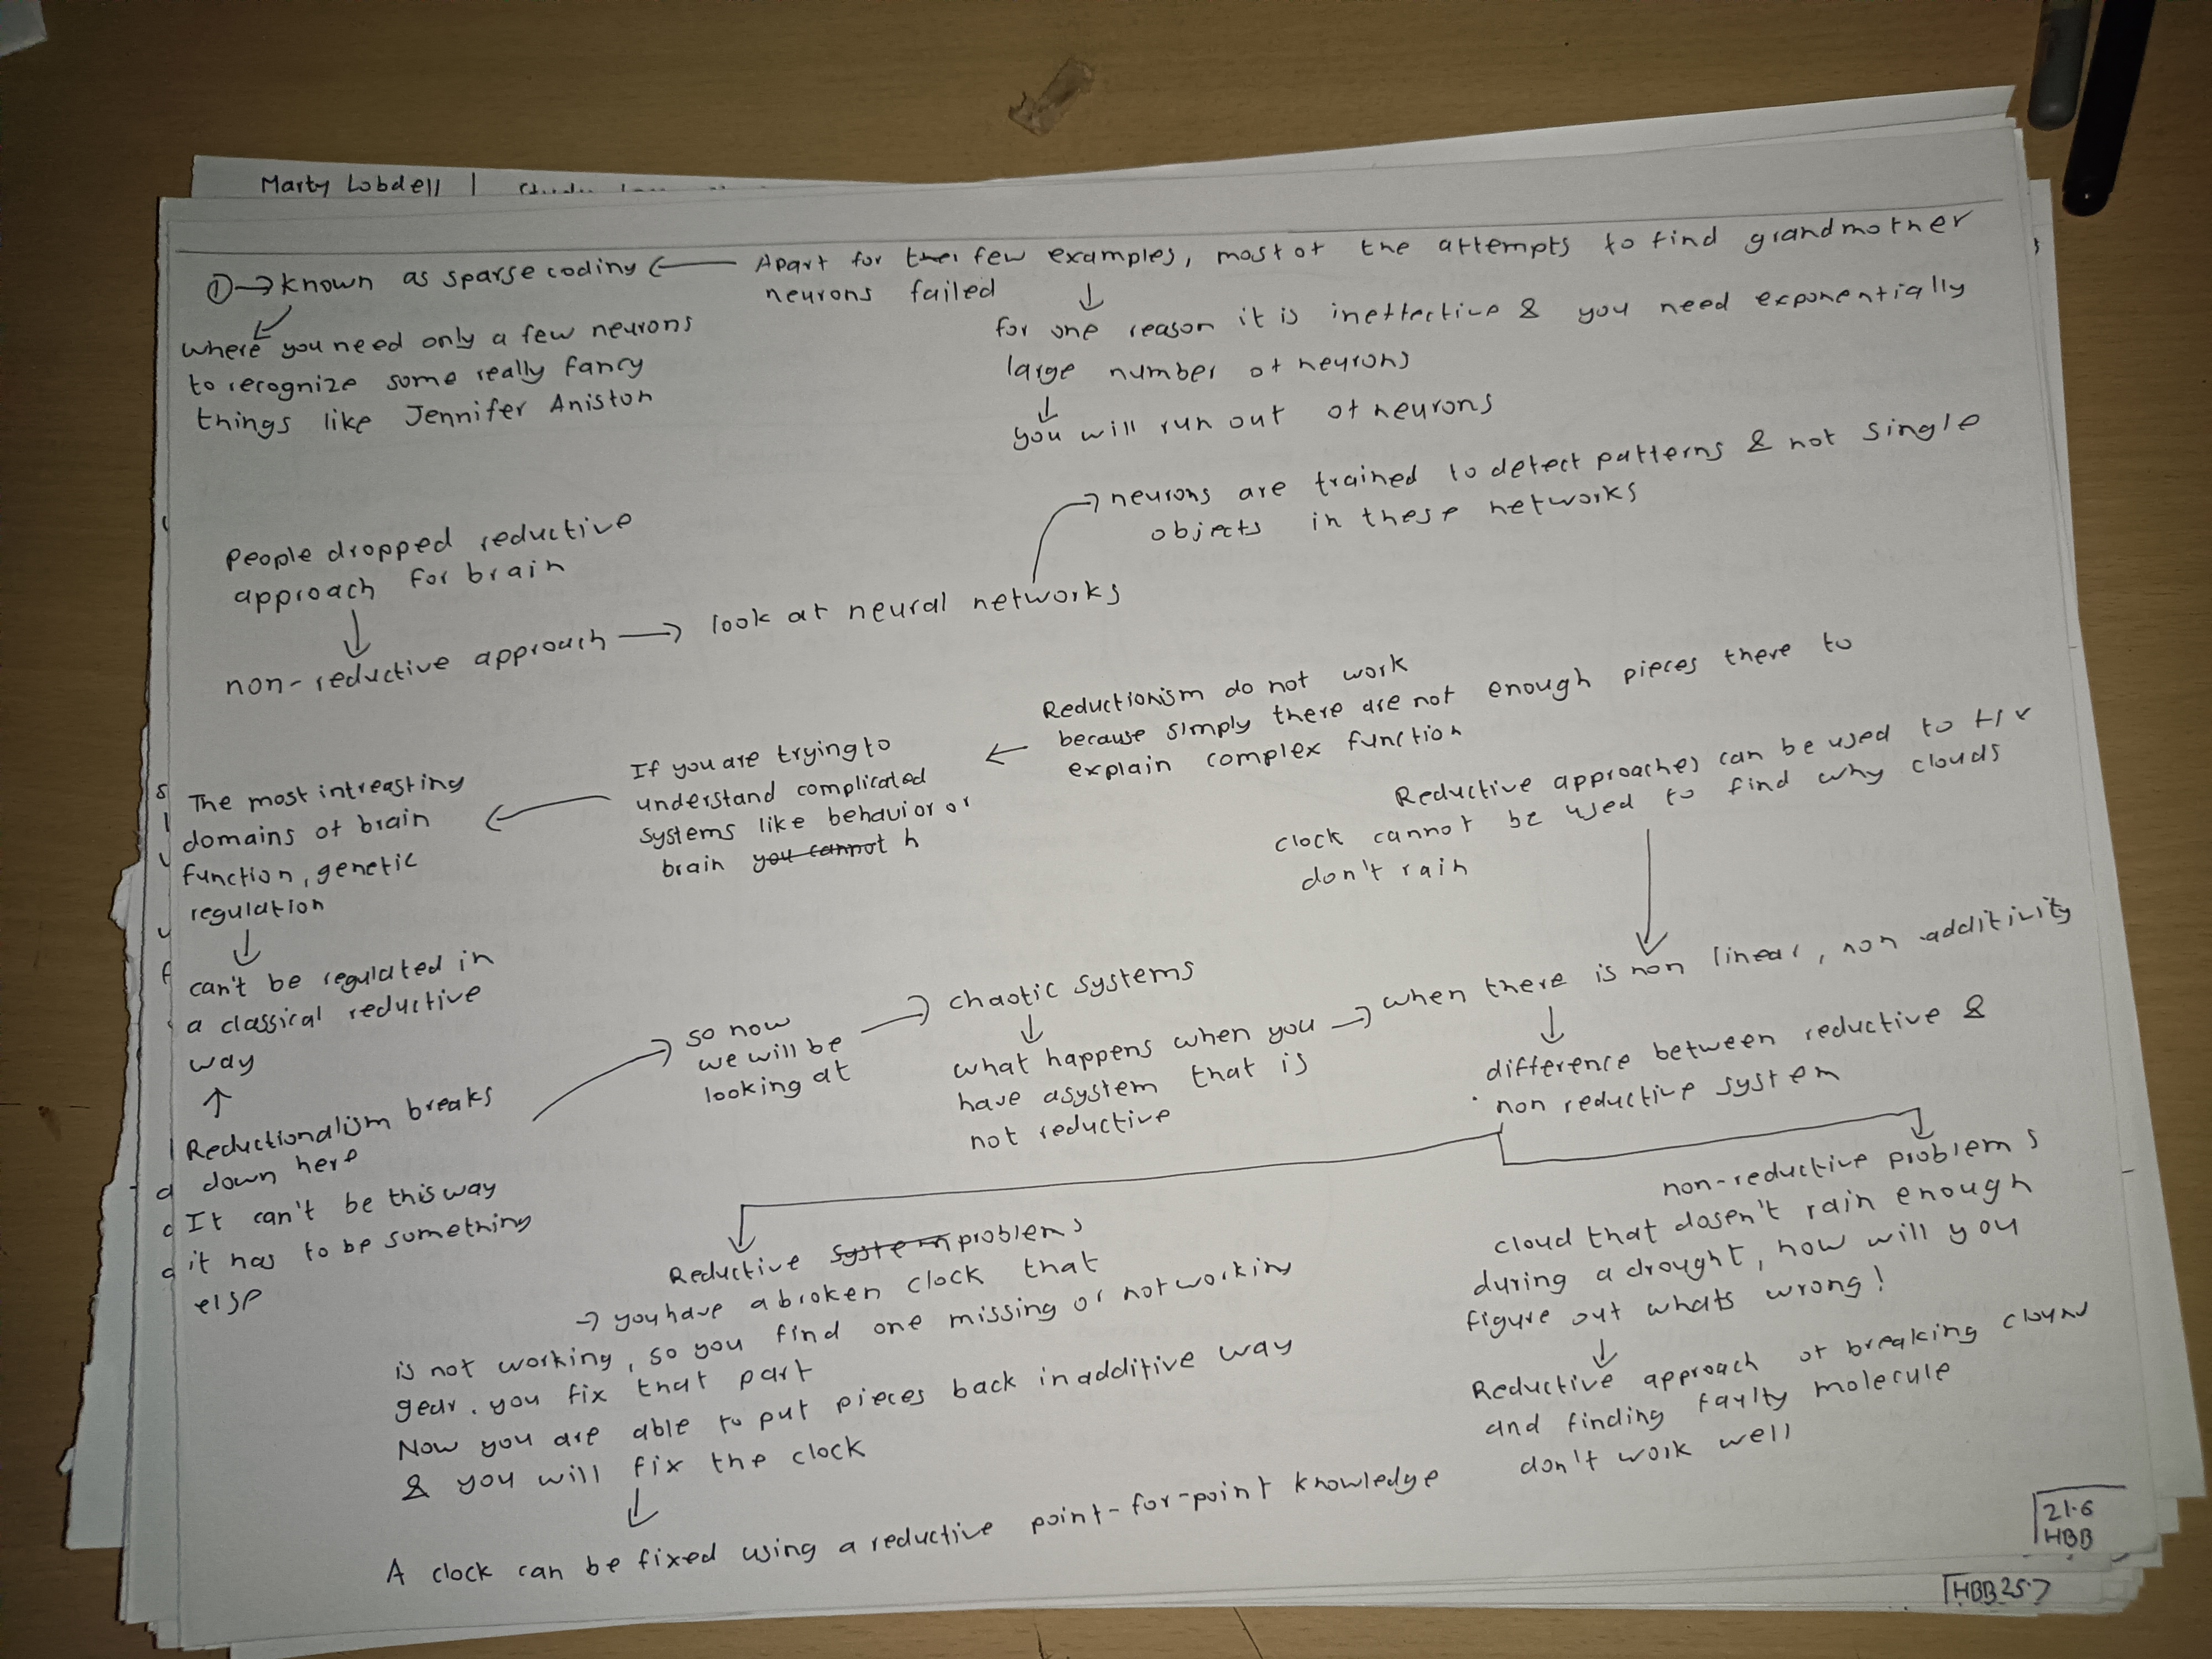 Marty Lobdell |
① → known as sparse coding ← Apart for few examples, most of the attempts to find grandmother
neurons failed
where you need only a few neurons
to recognize some really fancy
things like Jennifer Aniston
for one reason it is ineffective & you need exponentially
large number of neurons
you will run out of neurons
→ neurons are trained to detect patterns & not single
objects in these networks
People dropped reductive
approach for brain
non-reductive approach → look at neural networks
Reductionism do not work
because simply there are not enough pieces there to
explain complex function
If you are trying to
understand complicated
systems like behavior or
brain you cannot h
The most intreasting
domains of brain
function, genetic
regulation
can't be regulated in
a classical reductive
way
Reductionalism breaks
down here
It can't be this way
it has to be something
else
Reductive approaches can be used to fix
clock cannot be used to find why clouds
don't rain
so now
we will be
looking at
→ chaotic systems
what happens when you
have a system that is
not reductive
→ when there is non linear, non additivity
difference between reductive &
non reductive system
Reductive system problems
→ you have a broken clock that
is not working, so you find one missing or not working
gear. you fix that part
Now you are able to put pieces back in additive way
& you will fix the clock
A clock can be fixed using a reductive point-for-point knowledge
non-reductive problems
cloud that dosen't rain enough
during a drought, how will you
figure out whats wrong!
Reductive approach of breaking
and finding faulty molecule
don't work well
21.6
HBB
HBB 25.7